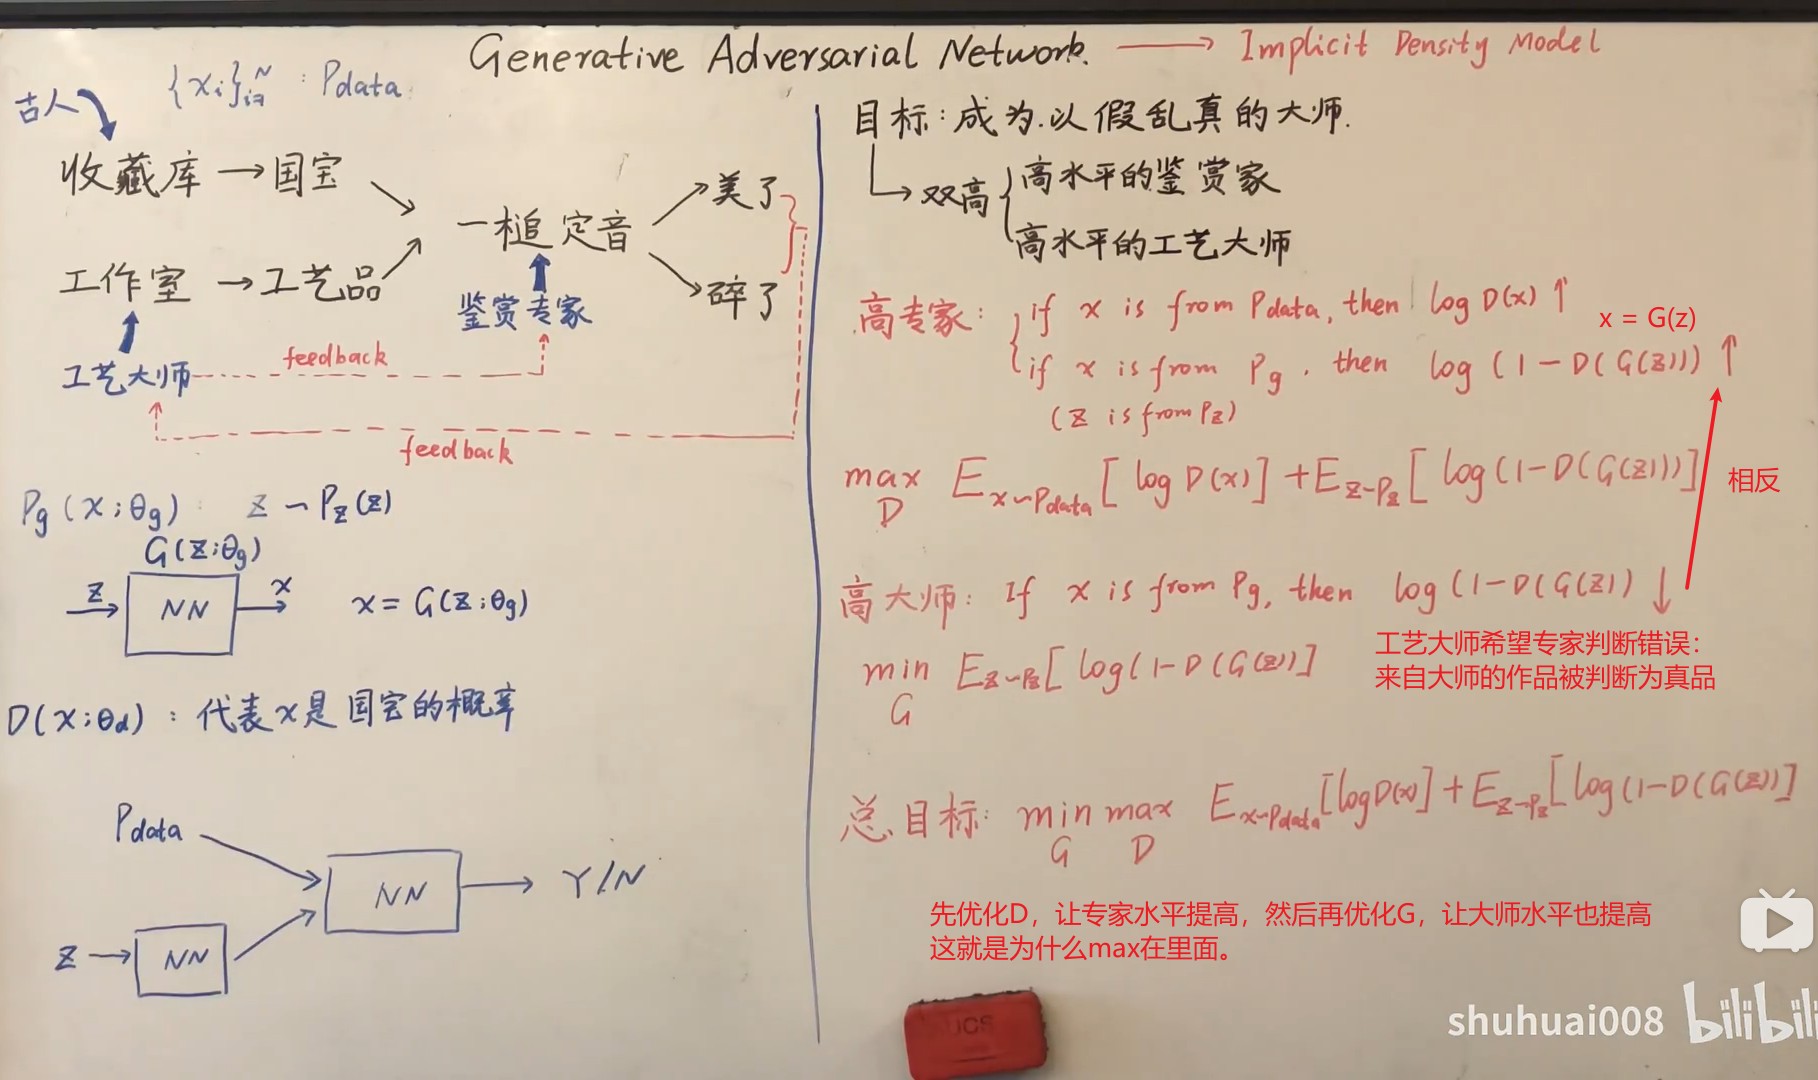 Generative Adversarial Network. → Implicit Density Model
{xi}ᵢ₌₁ᴺ : Pdata
古人
收藏库 → 国宝
工作室 → 工艺品
一槌定音
美了
碎了
鉴赏专家
工艺大师
feedback
feedback
Pg(x;θg) : z ~ Pz(z)
G(z;θg)
z → NN → x
x = G(z;θg)
D(x;θd) : 代表x是国宝的概率
Pdata
NN → Y/N
z → NN
目标: 成为以假乱真的大师.
→ 双高
高水平的鉴赏家
高水平的工艺大师
高专家:
if x is from Pdata, then log D(x) ↑
x = G(z)
if x is from Pg, then log(1-D(G(z))) ↑
(z is from Pz)
max_D E_{x~Pdata}[log D(x)] + E_{z~Pz}[log(1-D(G(z)))]
相反
高大师: If x is from Pg, then log(1-D(G(z)) ↓
工艺大师希望专家判断错误:
来自大师的作品被判断为真品
min_G E_{z~Pz}[log(1-D(G(z))]
总目标: min_G max_D E_{x~Pdata}[log D(x)] + E_{z~Pz}[log(1-D(G(z))]
先优化D，让专家水平提高，然后再优化G，让大师水平也提高
这就是为什么max在里面。
shuhuai008 bilibili